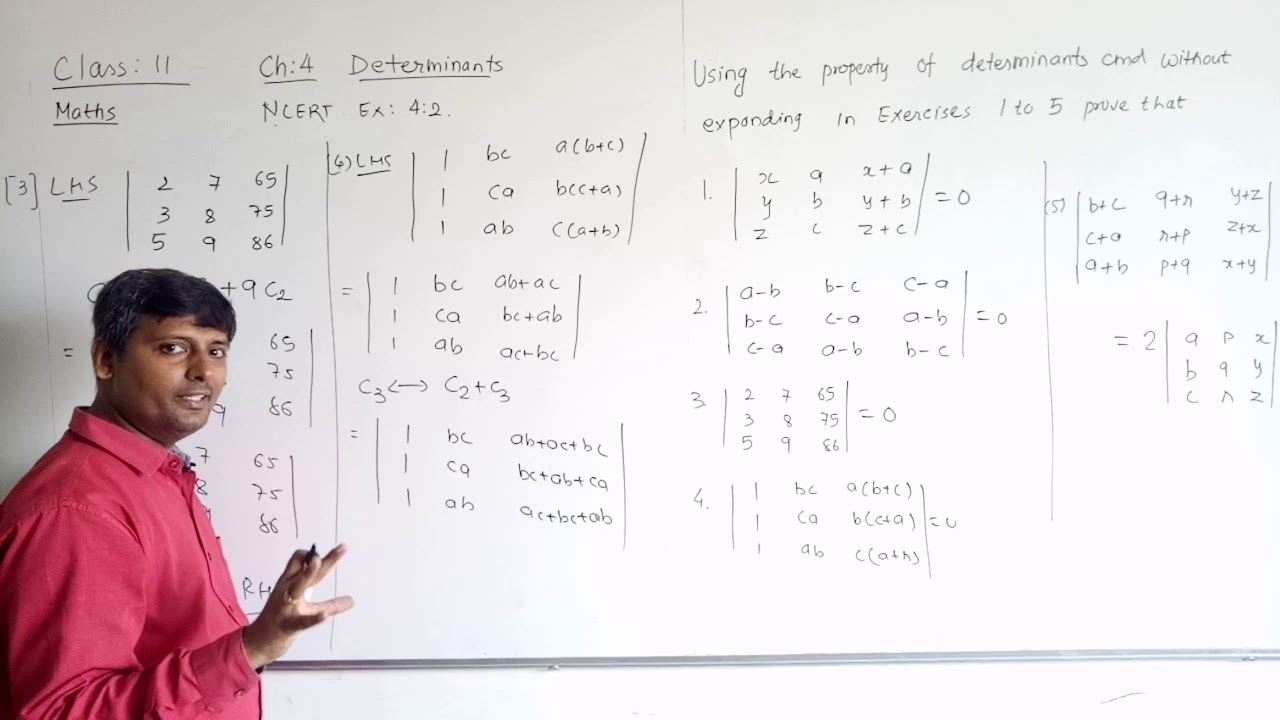 Class: 11 Ch:4 Determinants
Maths NCERT Ex: 4:2.
[3] LHS
2 7 65
3 8 75
5 9 86
+ 9 C2
=
65
75
9 86
7 65
8 75
86
RH
(4) LHS
1 bc a(b+c)
1 ca b(c+a)
1 ab c(a+b)
=
1 bc ab+ac
1 ca bc+ab
1 ab ac+bc
C3 <-> C2+C3
=
1 bc ab+ac+bc
1 ca bc+ab+ca
1 ab ac+bc+ab
Using the property of determinants and without
expanding in Exercises 1 to 5 prove that
1.
x a x+a
y b y+b = 0
z c z+c
2.
a-b b-c c-a
b-c c-a a-b = 0
c-a a-b b-c
3.
2 7 65
3 8 75 = 0
5 9 86
4.
1 bc a(b+c)
1 ca b(c+a) = 0
1 ab c(a+b)
(5)
b+c q+r y+z
c+a r+p z+x
a+b p+q x+y
= 2
a p x
b q y
c r z